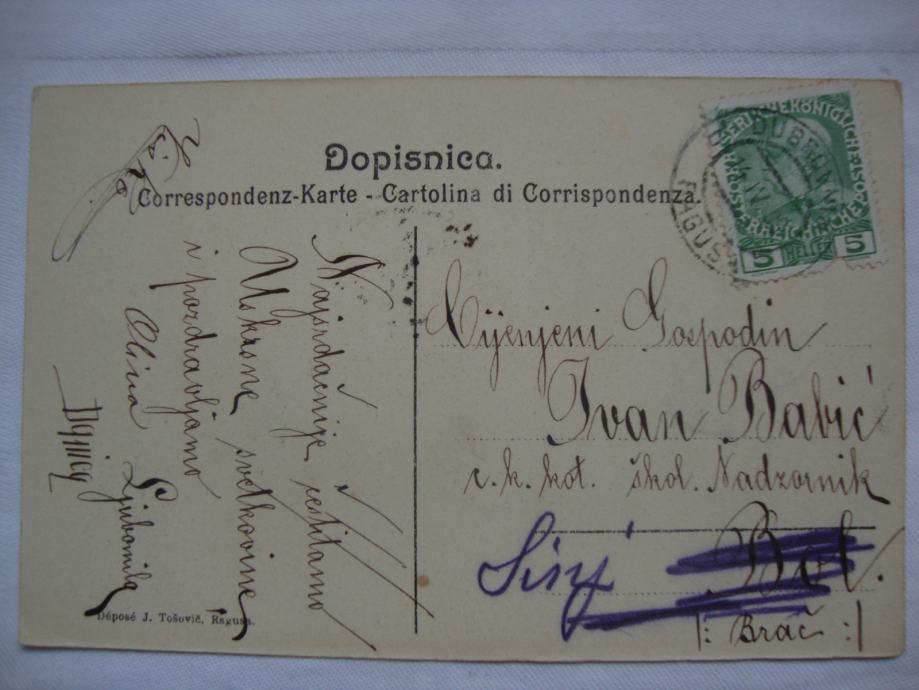 Dopisnica.
Correspondenz-Karte - Cartolina di Corrispondenza.
Najsrdačnije čestitamo
Uskrsne svetkovine
i pozdravljamo
Olina Ljubomila
Danica
Cijenjeni Gospodin
Ivan Babić
c. k. kot. škol. Nadzornik
Bol.
Sinj
|: Brač :|
Déposé J. Tošovič, Ragusa.
5 HELLER 5
DUBROVNIK
RAGUSA